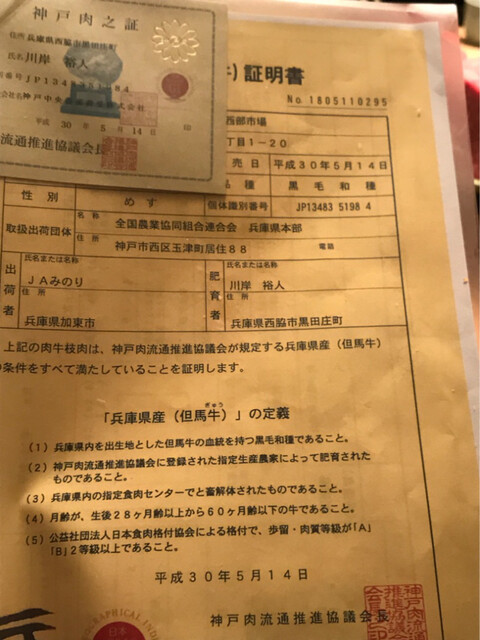 神戸肉之証
住所 兵庫県西脇市黒田庄町
氏名 川岸 裕人
平成 30年 5月 14日
肉流通推進協議会長
牛）証明書
No.1805110295
西部市場
丁目1－20
売日 平成30年5月14日
品種 黒毛和種
性別 めす 個体識別番号 JP13483 5198 4
取扱出荷団体
名称 全国農業協同組合連合会 兵庫県本部
住所 神戸市西区玉津町居住88 電話
出荷者
氏名または名称
JAみのり
住所
兵庫県加東市
肥育者
氏名または名称
川岸 裕人
住所
兵庫県西脇市黒田庄町
上記の肉牛枝肉は、神戸肉流通推進協議会が規定する兵庫県産（但馬牛）
条件をすべて満たしていることを証明します。
ぎゅう
「兵庫県産（但馬牛）」の定義
（1）兵庫県内を出生地とした但馬牛の血統を持つ黒毛和種であること。
（2）神戸肉流通推進協議会に登録された指定生産農家によって肥育された
ものであること。
（3）兵庫県内の指定食肉センターでと畜解体されたものであること。
（4）月齢が、生後28ヶ月齢以上から60ヶ月齢以下の牛であること。
（5）公益社団法人日本食肉格付協会による格付で、歩留・肉質等級が「A」
「B」2等級以上であること。
平成30年5月14日
神戸肉流通推進協議会長